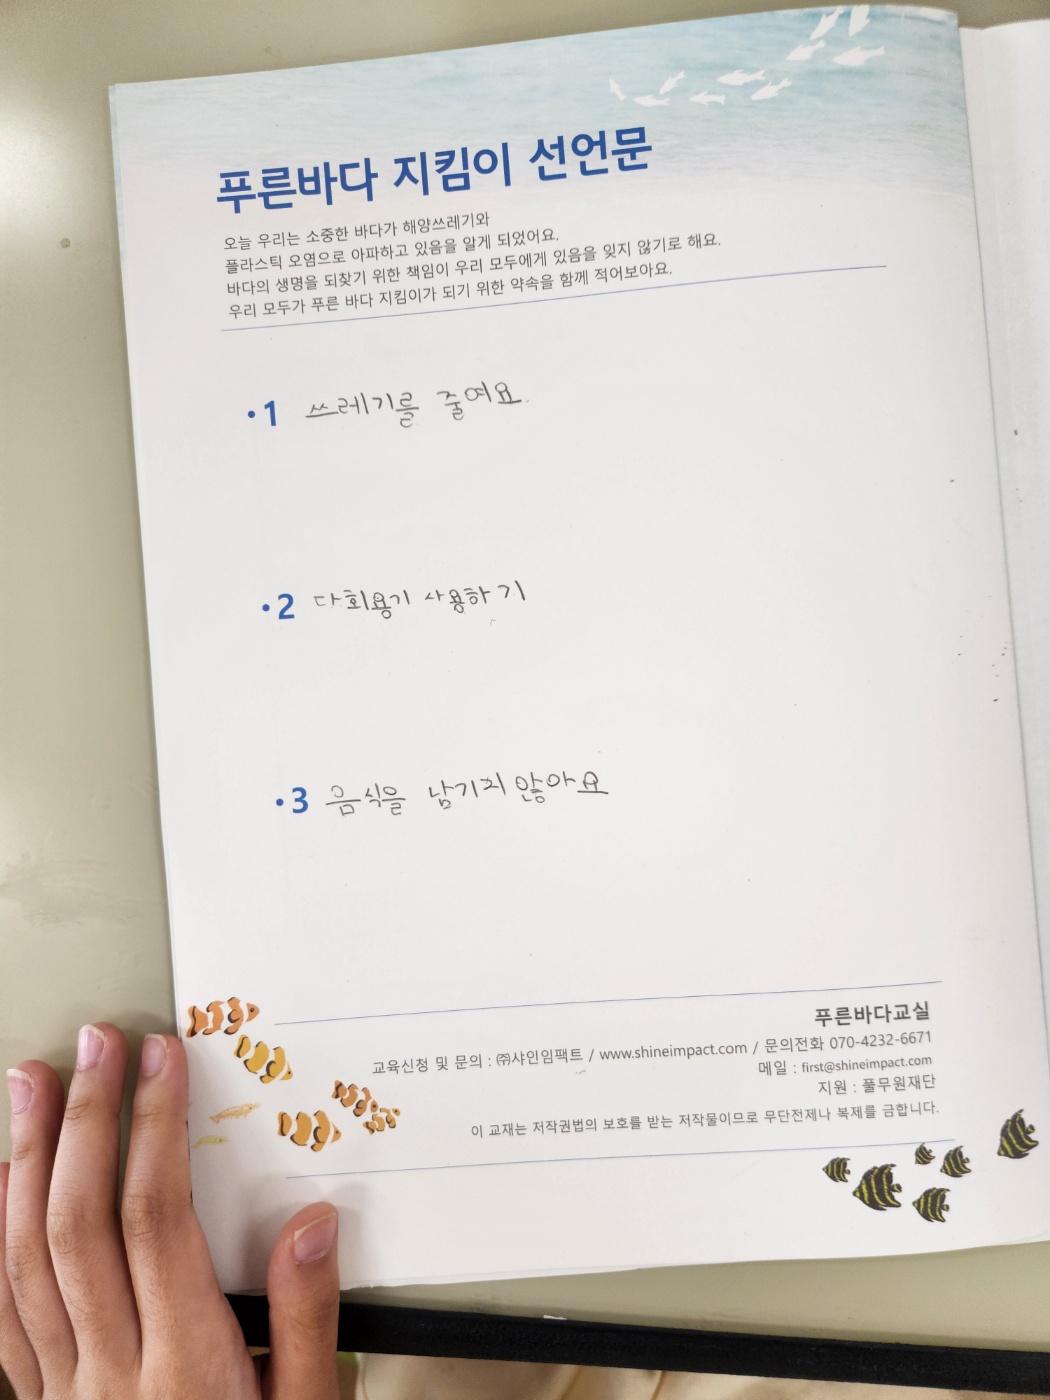 푸른바다 지킴이 선언문
오늘 우리는 소중한 바다가 해양쓰레기와
플라스틱 오염으로 아파하고 있음을 알게 되었어요.
바다의 생명을 되찾기 위한 책임이 우리 모두에게 있음을 잊지 않기로 해요.
우리 모두가 푸른 바다 지킴이가 되기 위한 약속을 함께 적어보아요.
•1 쓰레기를 줄여요.
•2 다회용기 사용하기
•3 음식을 남기지 않아요
푸른바다교실
교육신청 및 문의 : ㈜샤인임팩트 / www.shineimpact.com / 문의전화 070-4232-6671
메일 : first@shineimpact.com
지원 : 풀무원재단
이 교재는 저작권법의 보호를 받는 저작물이므로 무단전제나 복제를 금합니다.